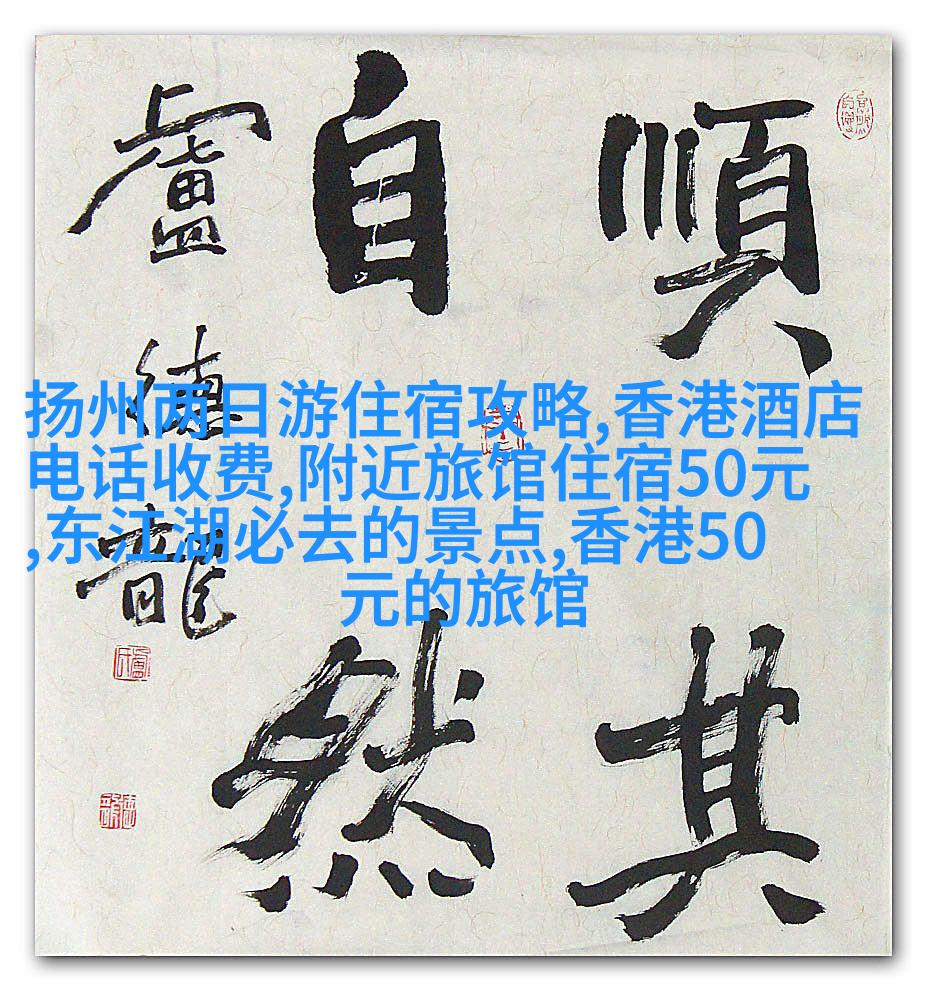 順其
自然
盧德龍
扬州两日游住宿攻略,香港酒店
电话收费,附近旅馆住宿50元
,东江湖必去的景点,香港50
元的旅馆